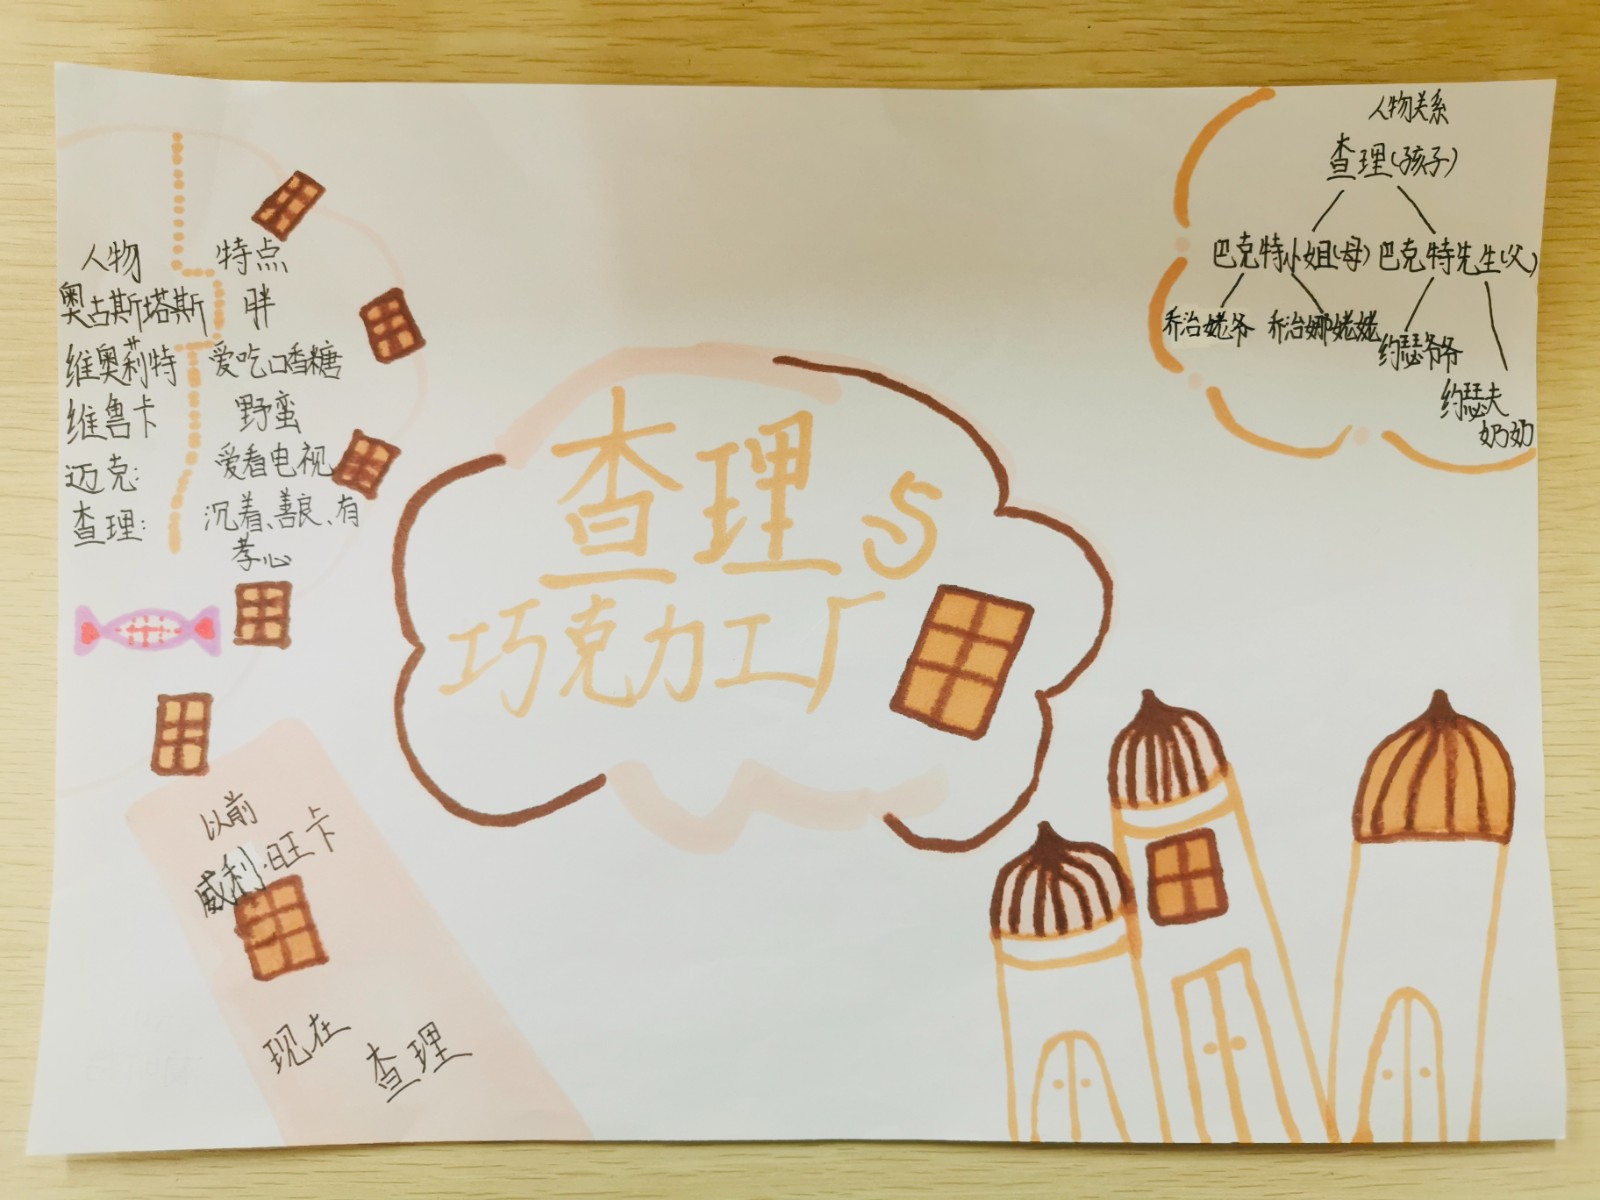 人物 特点
奥古斯塔斯 胖
维奥莉特 爱吃口香糖
维鲁卡 野蛮
迈克: 爱看电视
查理: 沉着、善良、有
孝心
查理S
巧克力工厂
人物关系
查理(孩子)
巴克特小姐(母) 巴克特先生(父)
乔治姥爷 乔治娜姥姥
约瑟爷爷
约瑟夫
奶奶
以前
威利·旺卡
现在
查理